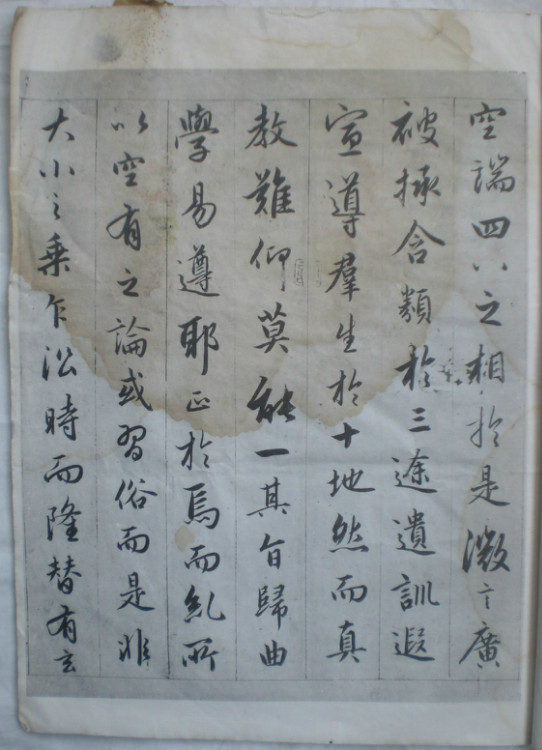 空端四八之相於是微言廣
被拯含類於三途遺訓遐
宣導羣生於十地然而真
教難仰莫能一其旨歸曲
學易遵耶正於焉而糺所
以空有之論或習俗而是非
大小之乘乍㳂時而隆替有玄